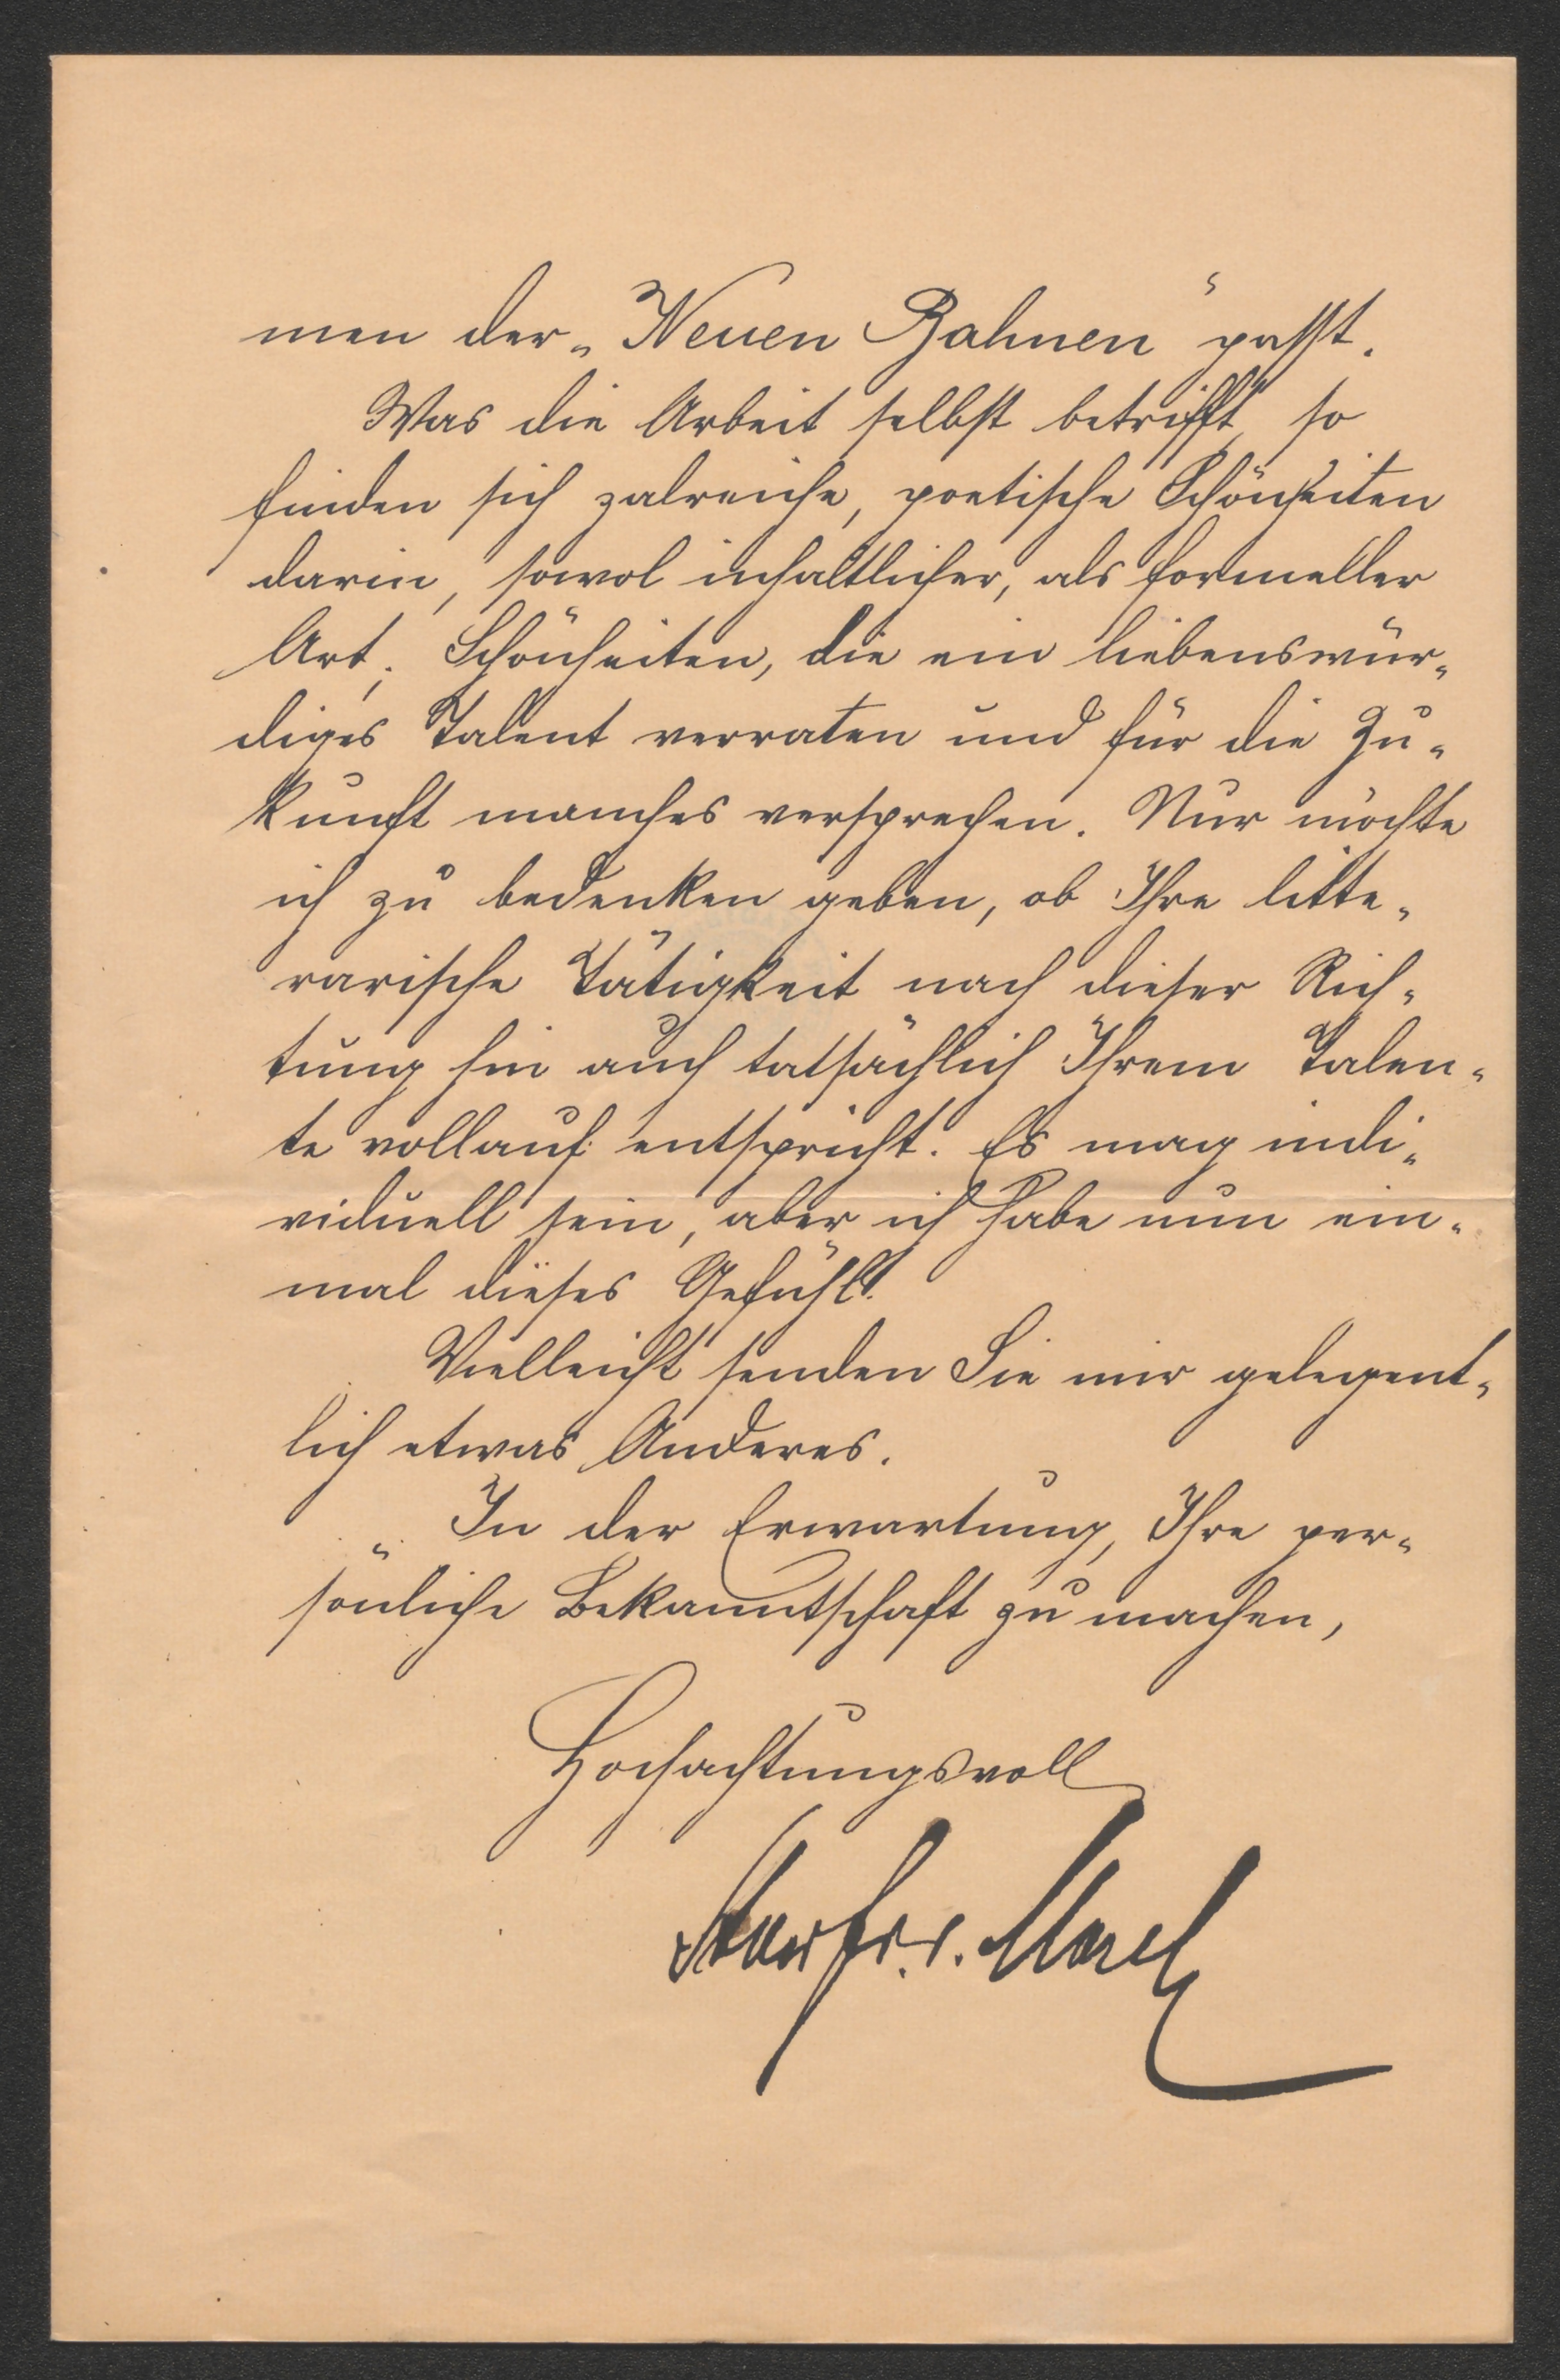 men der „Neuen Bahnen" passt.
Was die Arbeit selbst betrifft, so
finden sich zalreiche, poetische Schönheiten
darin, sowol inhaltlicher, als formeller
Art; Schönheiten, die ein liebenswür-
diges Talent verraten und für die Zu-
kunft manches versprechen. Nur möchte
ich zu bedenken geben, ob Ihre litte-
rarische Tätigkeit nach dieser Rich-
tung hin auch tatsächlich Ihrem Talen-
te vollauf entspricht. Es mag indi-
viduell sein, aber ich habe nun ein-
mal dieses Gefühl!
Vielleicht senden Sie mir gelegent-
lich etwas Anderes.
In der Erwartung, Ihre per-
sönliche Bekanntschaft zu machen,
Hochachtungsvoll